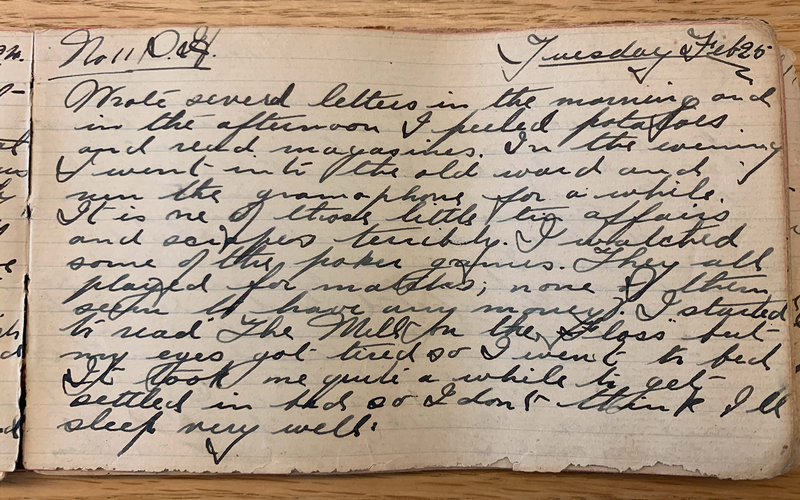 No 11 D.H.
Tuesday Feb 25
Wrote several letters in the morning and
in the afternoon I peeled potatoes
and read magasines. In the evening
I went into the old ward and
run the gramophone for a while.
It is ne of those little tin affairs
and scrapes terribly. I watched
some of the poker games. They all
played for matches; none of them
seem to have any money. I started
to read "The Mill on the Floss" but
my eyes got tired so I went to bed
It took me quite a while to get
settled in bed so I don't think I'll
sleep very well.